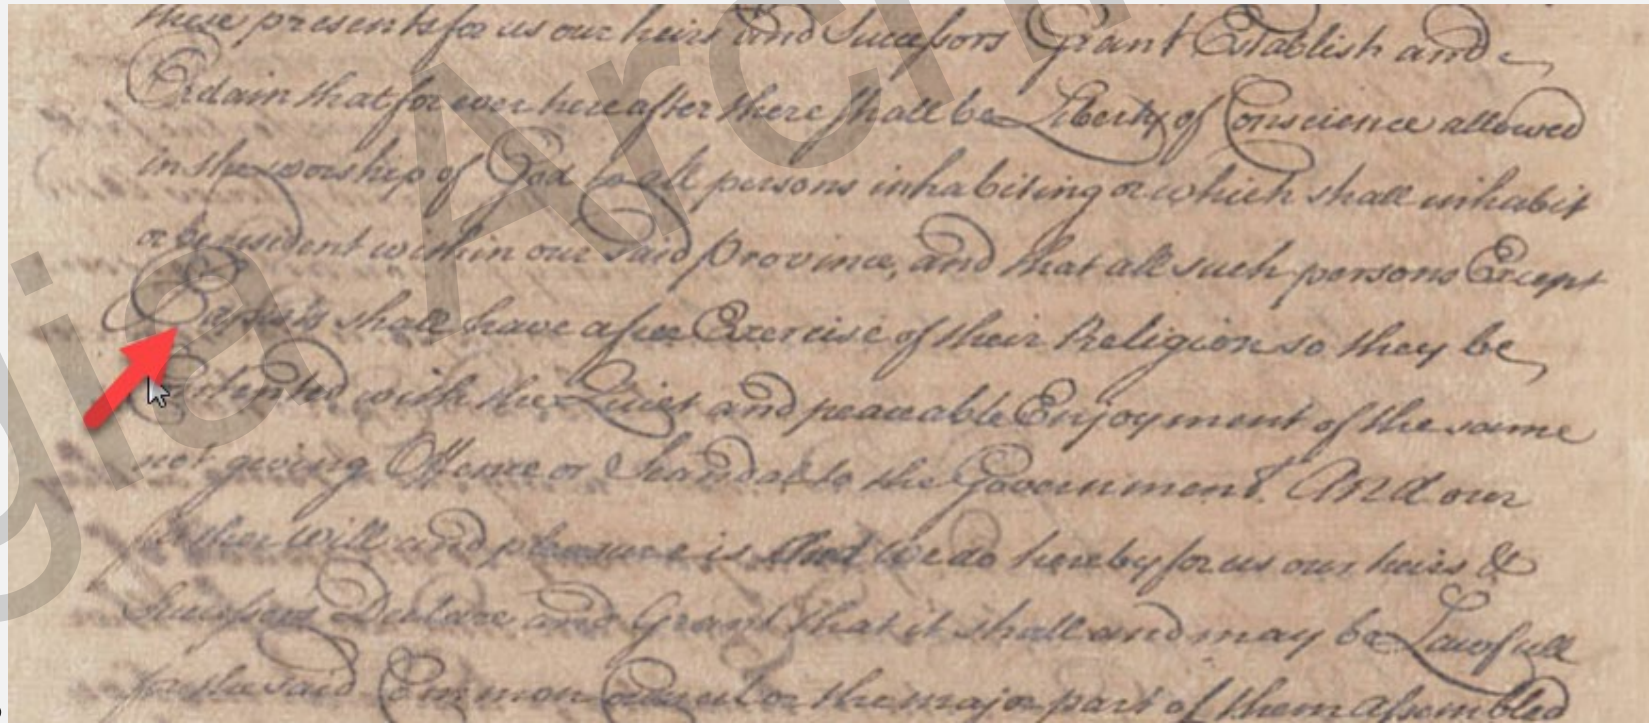 these presents for us our heirs and Successors Grant Establish and
Ordain that for ever hereafter there shall be Liberty of Conscience allowed
in the worship of God to all persons inhabiting or which shall inhabit
or be resident within our said Province, and that all such persons Except
Papists shall have a free Exercise of their Religion so they be
Contented with the Quiet and peaceable Enjoyment of the same
not giving Offence or Scandal to the Government. And our
further will and pleasure is that we do hereby for us our heirs &
Successors Declare and Grant that it shall and may be Lawfull
for the said Common Council or the major part of them assembled
gia Archi